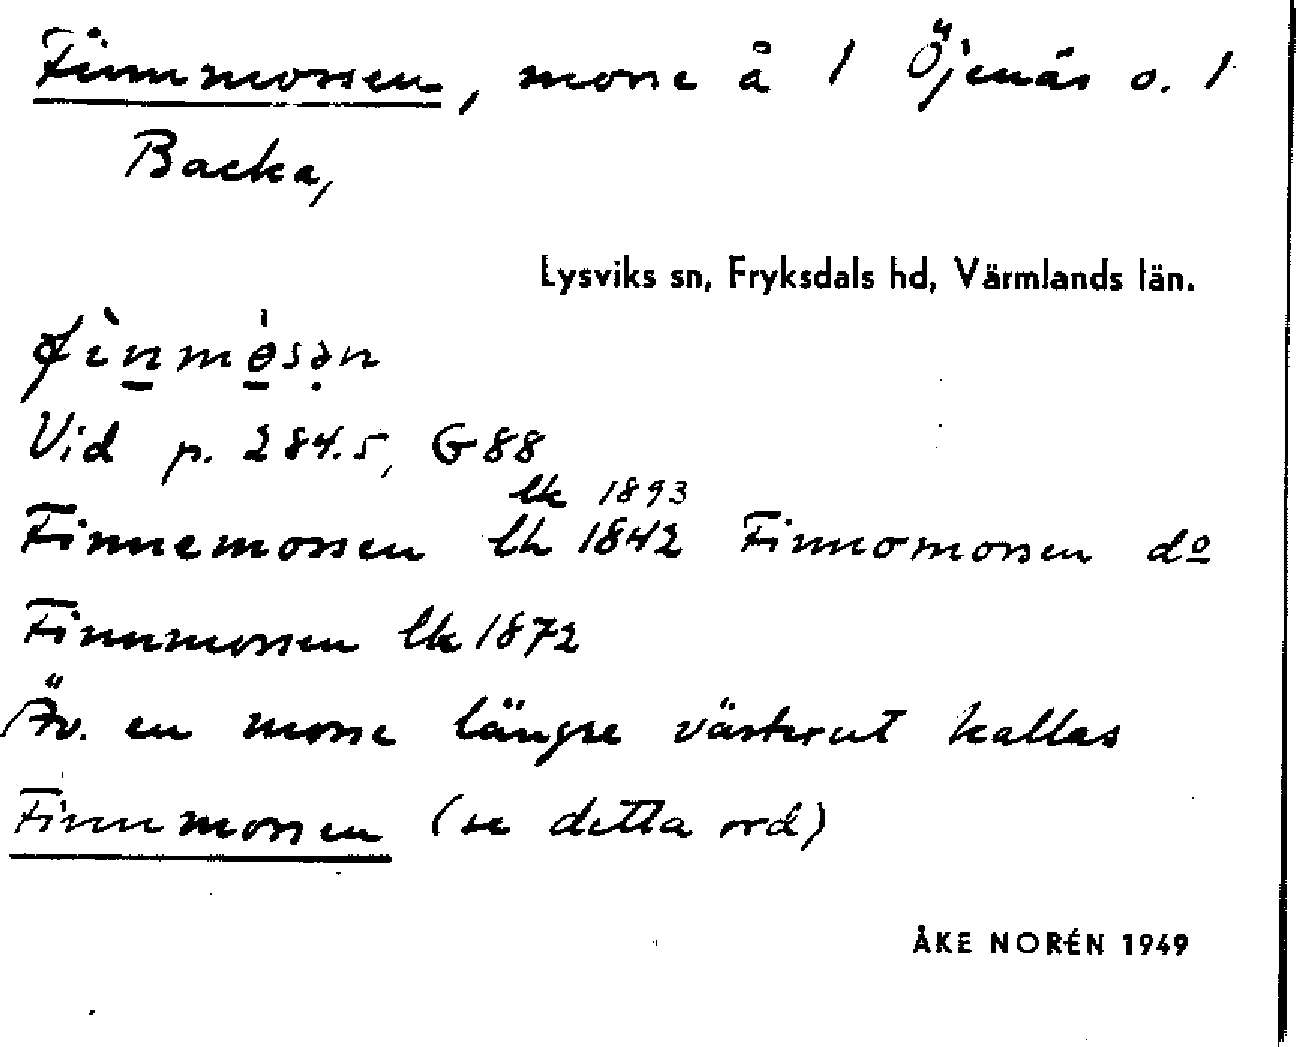 Finnmossen, mosse å 1 Öjenäs o. 1
Backa,
Lysviks sn, Fryksdals hd, Värmlands län.
fìnmòsən
Vid p. 284.5, G88
lk 1893
Finnemossen lk 1842 Finnomossen dº
Finnmossen lk 1872
Äv. en mosse längre västerut kallas
Finnmossen (se detta ord)
ÅKE NORÉN 1949